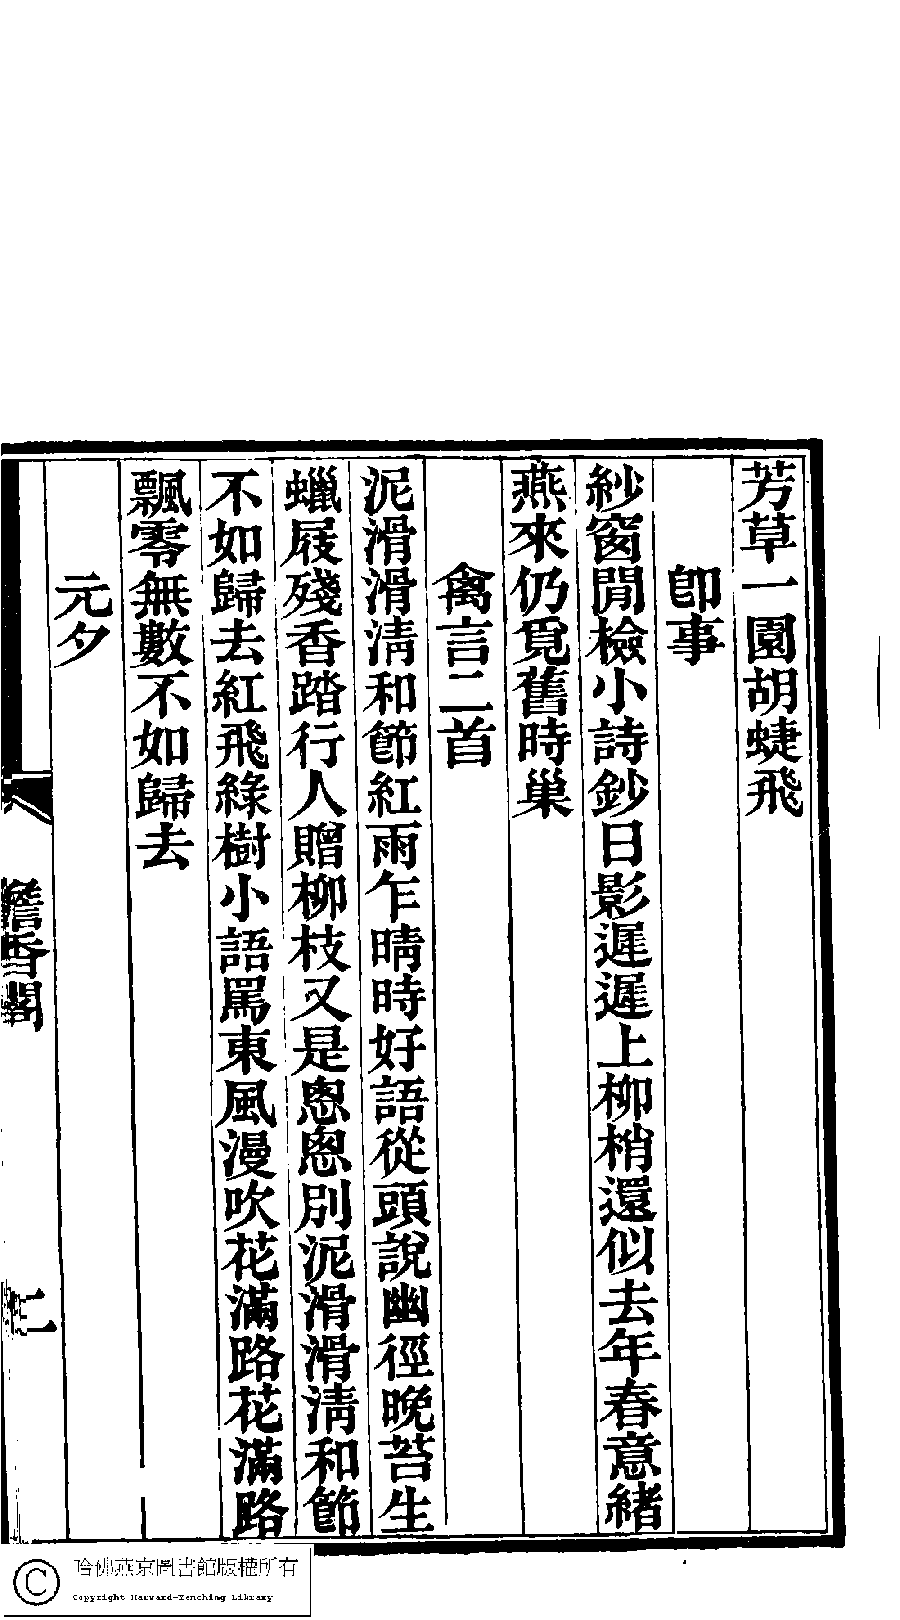 芳草一園胡蜨飛
卽事
紗窗閒檢小詩鈔日影遲遲上柳梢還似去年春意緒
燕來仍覓舊時巢
禽言二首
泥滑滑淸和節紅雨乍晴時好語從頭說幽徑晚苔生
蠟屐殘香踏行人贈柳枝又是悤悤別泥滑滑淸和節
不如歸去紅飛綠樹小語罵東風漫吹花滿路花滿路
飄零無數不如歸去
元夕
香閣
二
哈佛燕京圖書館版權所有
Copyright Harvard-Yenching Library